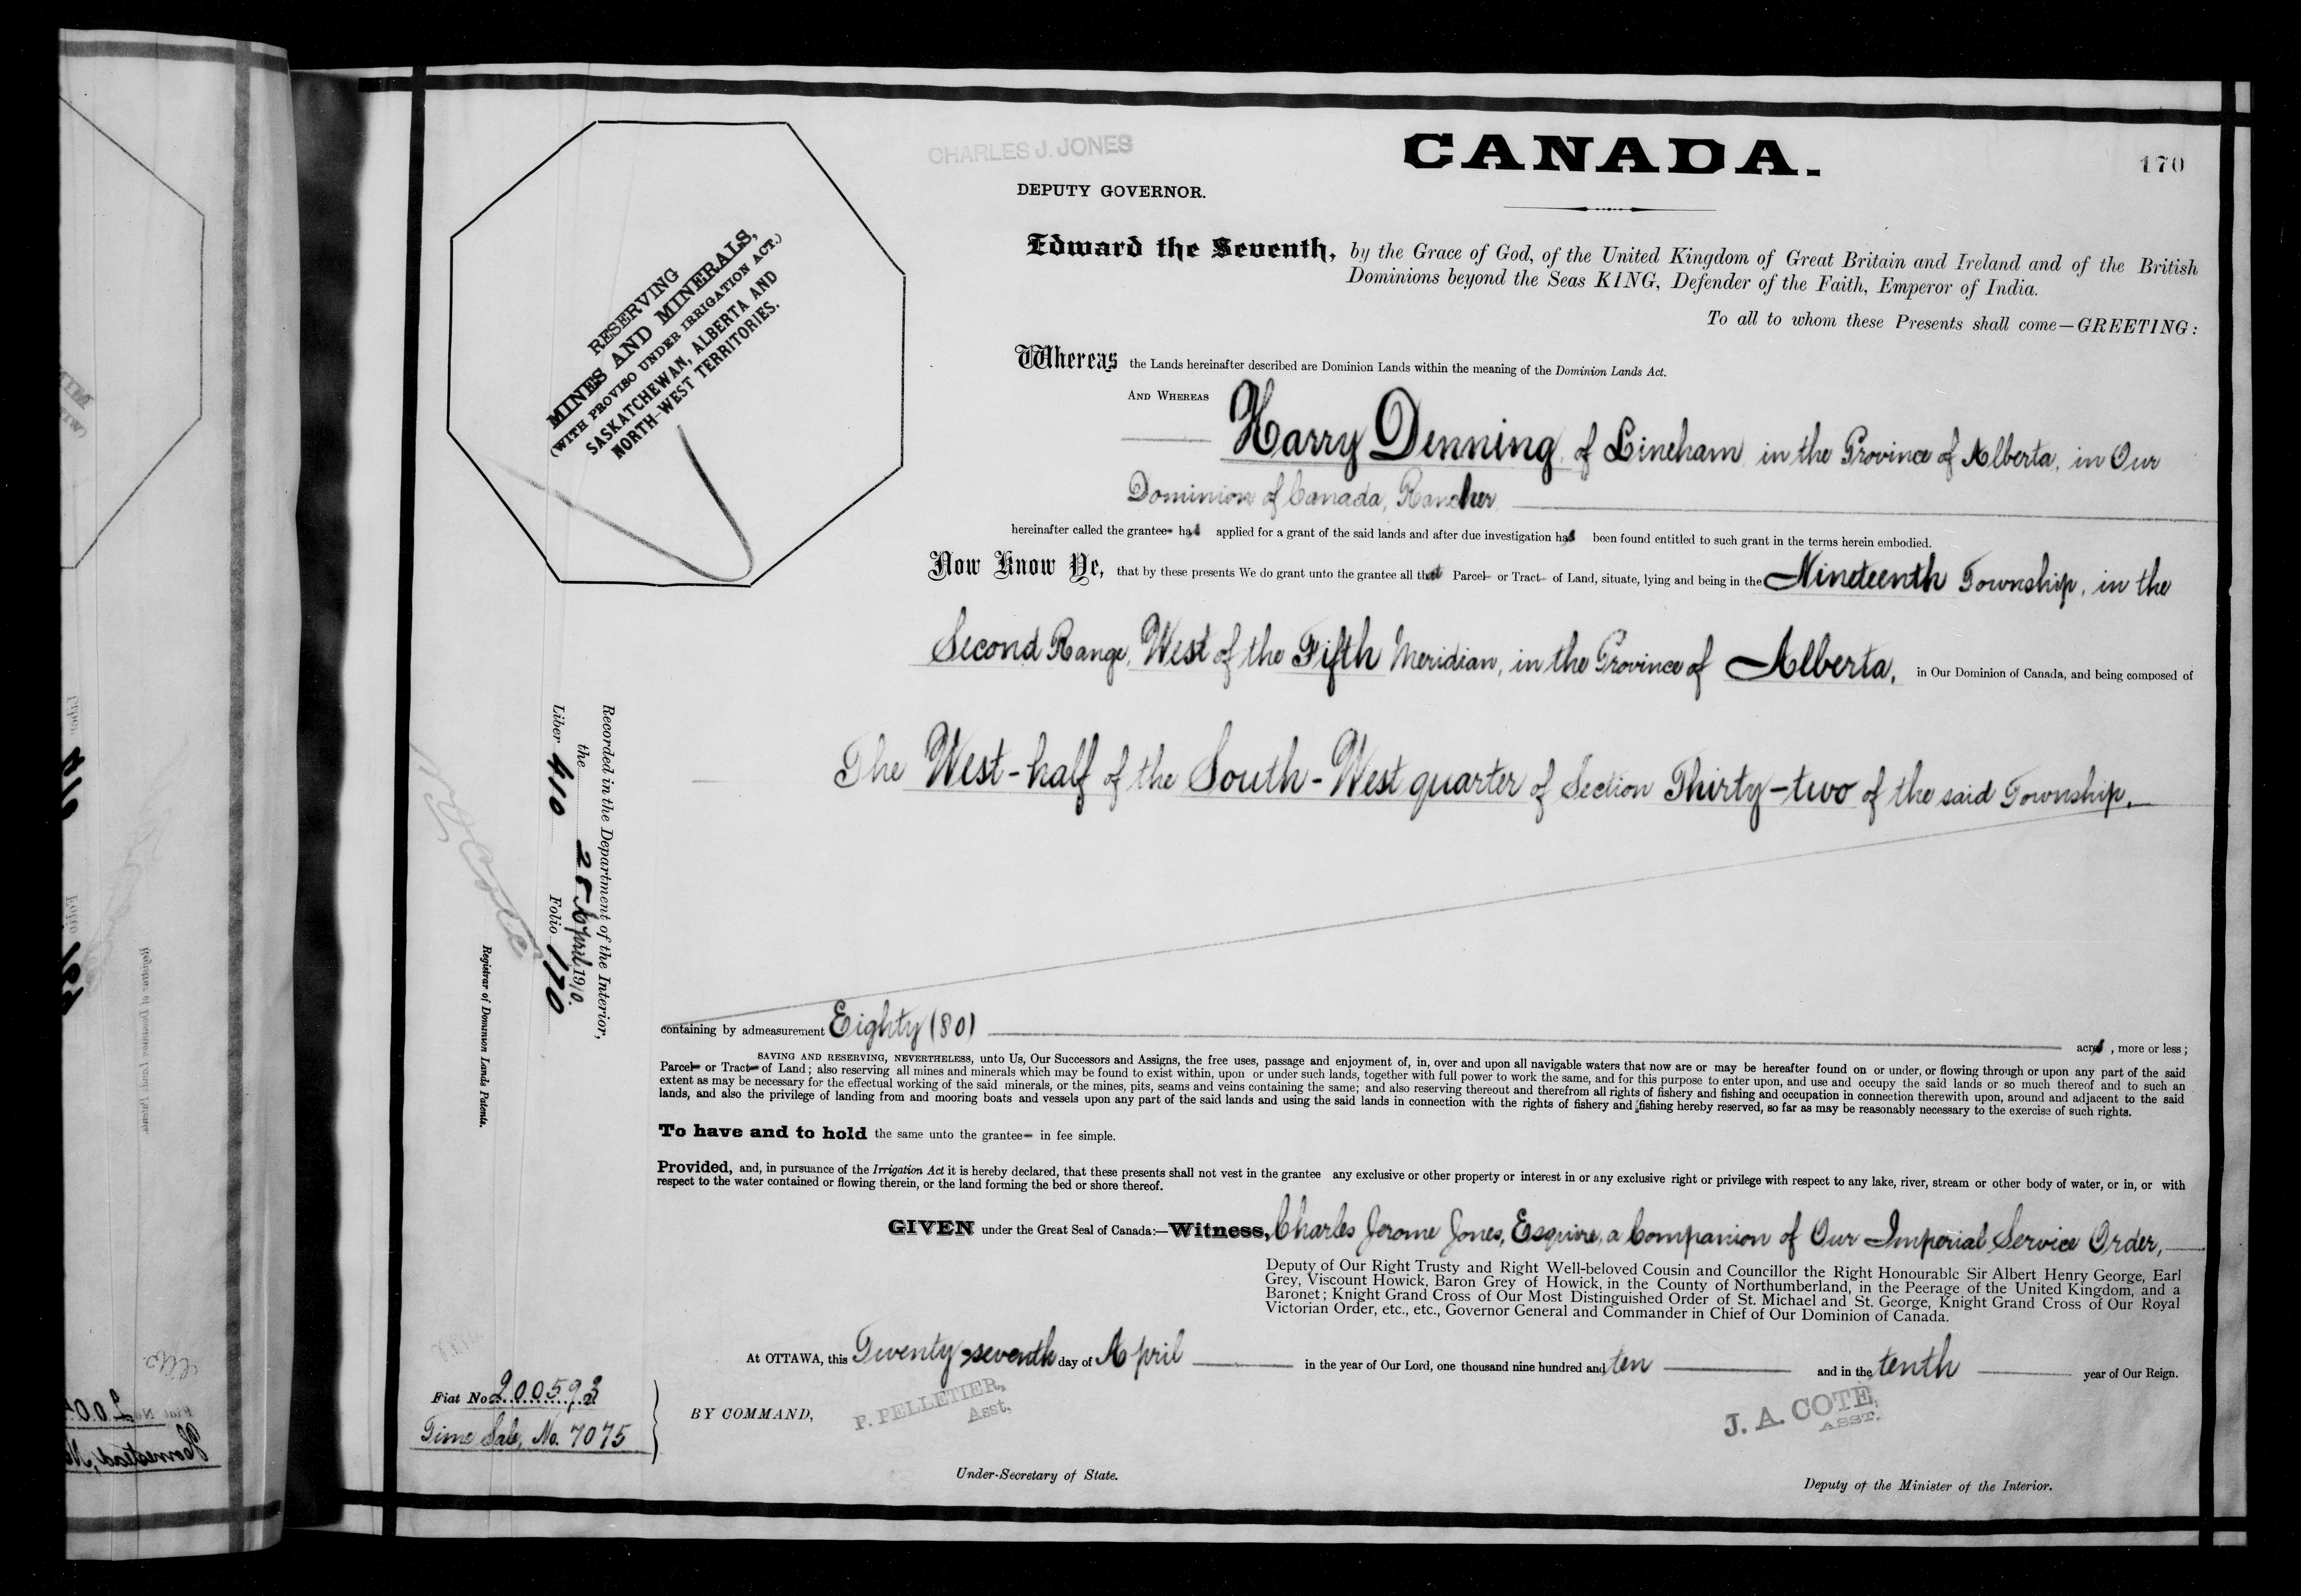 CHARLES J. JONES
CANADA.
170
DEPUTY GOVERNOR.
RESERVING
MINES AND MINERALS,
(WITH PROVISO UNDER IRRIGATION ACT.)
SASKATCHEWAN, ALBERTA AND
NORTH-WEST TERRITORIES.
Edward the Seventh, by the Grace of God, of the United Kingdom of Great Britain and Ireland and of the British
Dominions beyond the Seas KING, Defender of the Faith, Emperor of India.
To all to whom these Presents shall come—GREETING:
Whereas the Lands hereinafter described are Dominion Lands within the meaning of the Dominion Lands Act.
AND WHEREAS
Harry Denning of Lineham in the Province of Alberta, in Our
Dominion of Canada, Rancher
hereinafter called the grantee has applied for a grant of the said lands and after due investigation has been found entitled to such grant in the terms herein embodied.
Now Know Ye, that by these presents We do grant unto the grantee all that Parcel or Tract of Land, situate, lying and being in the Nineteenth Township, in the
Second Range, West of the Fifth Meridian, in the Province of Alberta, in Our Dominion of Canada, and being composed of
The West-half of the South-West quarter of Section Thirty-two of the said Township.
containing by admeasurement Eighty (80) acres, more or less;
SAVING AND RESERVING, NEVERTHELESS, unto Us, Our Successors and Assigns, the free uses, passage and enjoyment of, in, over and upon all navigable waters that now are or may be hereafter found on or under, or flowing through or upon any part of the said
Parcel or Tract of Land; also reserving all mines and minerals which may be found to exist within, upon or under such lands, together with full power to work the same, and for this purpose to enter upon, and use and occupy the said lands or so much thereof and to such an
extent as may be necessary for the effectual working of the said minerals, or the mines, pits, seams and veins containing the same; and also reserving thereout and therefrom all rights of fishery and fishing and occupation in connection therewith upon, around and adjacent to the said
lands, and also the privilege of landing from and mooring boats and vessels upon any part of the said lands and using the said lands in connection with the rights of fishery and fishing hereby reserved, so far as may be reasonably necessary to the exercise of such rights.
To have and to hold the same unto the grantee in fee simple.
Provided, and, in pursuance of the Irrigation Act it is hereby declared, that these presents shall not vest in the grantee any exclusive or other property or interest in or any exclusive right or privilege with respect to any lake, river, stream or other body of water, or in, or with
respect to the water contained or flowing therein, or the land forming the bed or shore thereof.
GIVEN under the Great Seal of Canada:—Witness, Charles Jerome Jones, Esquire, a Companion of Our Imperial Service Order,
Deputy of Our Right Trusty and Right Well-beloved Cousin and Councillor the Right Honourable Sir Albert Henry George, Earl
Grey, Viscount Howick, Baron Grey of Howick, in the County of Northumberland, in the Peerage of the United Kingdom, and a
Baronet; Knight Grand Cross of Our Most Distinguished Order of St. Michael and St. George, Knight Grand Cross of Our Royal
Victorian Order, etc., etc., Governor General and Commander in Chief of Our Dominion of Canada.
At OTTAWA, this Twenty-seventh day of April in the year of Our Lord, one thousand nine hundred and ten and in the tenth year of Our Reign.
BY COMMAND,
P. PELLETIER,
Asst.
Under-Secretary of State.
J. A. COTE,
ASST.
Deputy of the Minister of the Interior.
Recorded in the Department of the Interior,
the 28 April 1910.
Liber 410 Folio 170
Registrar of Dominion Lands Patents.
Fiat No. 200593
Time Sale, No. 7075